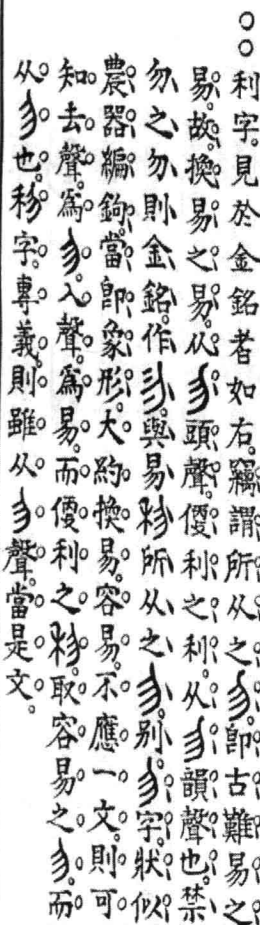 利字見於金銘者如右。竊謂所从之即古難易之
易。故換易之易。从頭聲。𠊳利之利。从韻聲也。禁
勿之勿則金銘作與易所从之別。字狀似
農器編鉤。當即象形。大約換易。容易。不應一文。則可
知去聲。為入聲。為易。而𠊳利之取容易之而
从也。字。專義。則雖从聲。當是文。